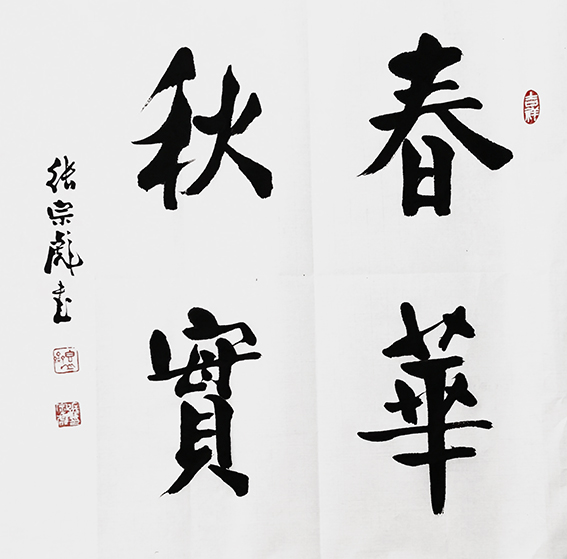 春華
秋實
張宗彪書
吉祥